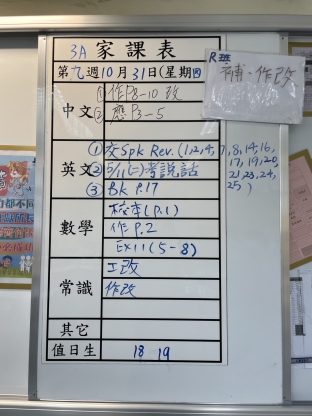 3A 家課表
R班
補、作改
第九週10月31日(星期四
中文
①作P8-10 改
② 應P3-5
英文
① 交 Spk Rev. (1,2,4,7,8,14,16,
17,19,20,
21,23,24,
25)
② 5/11(二)考說話
③ Bk P.17
數學
校本(P.1)
作 P.2
Ex11(5-8)
常識
工改
作改
其它
值日生
18 19